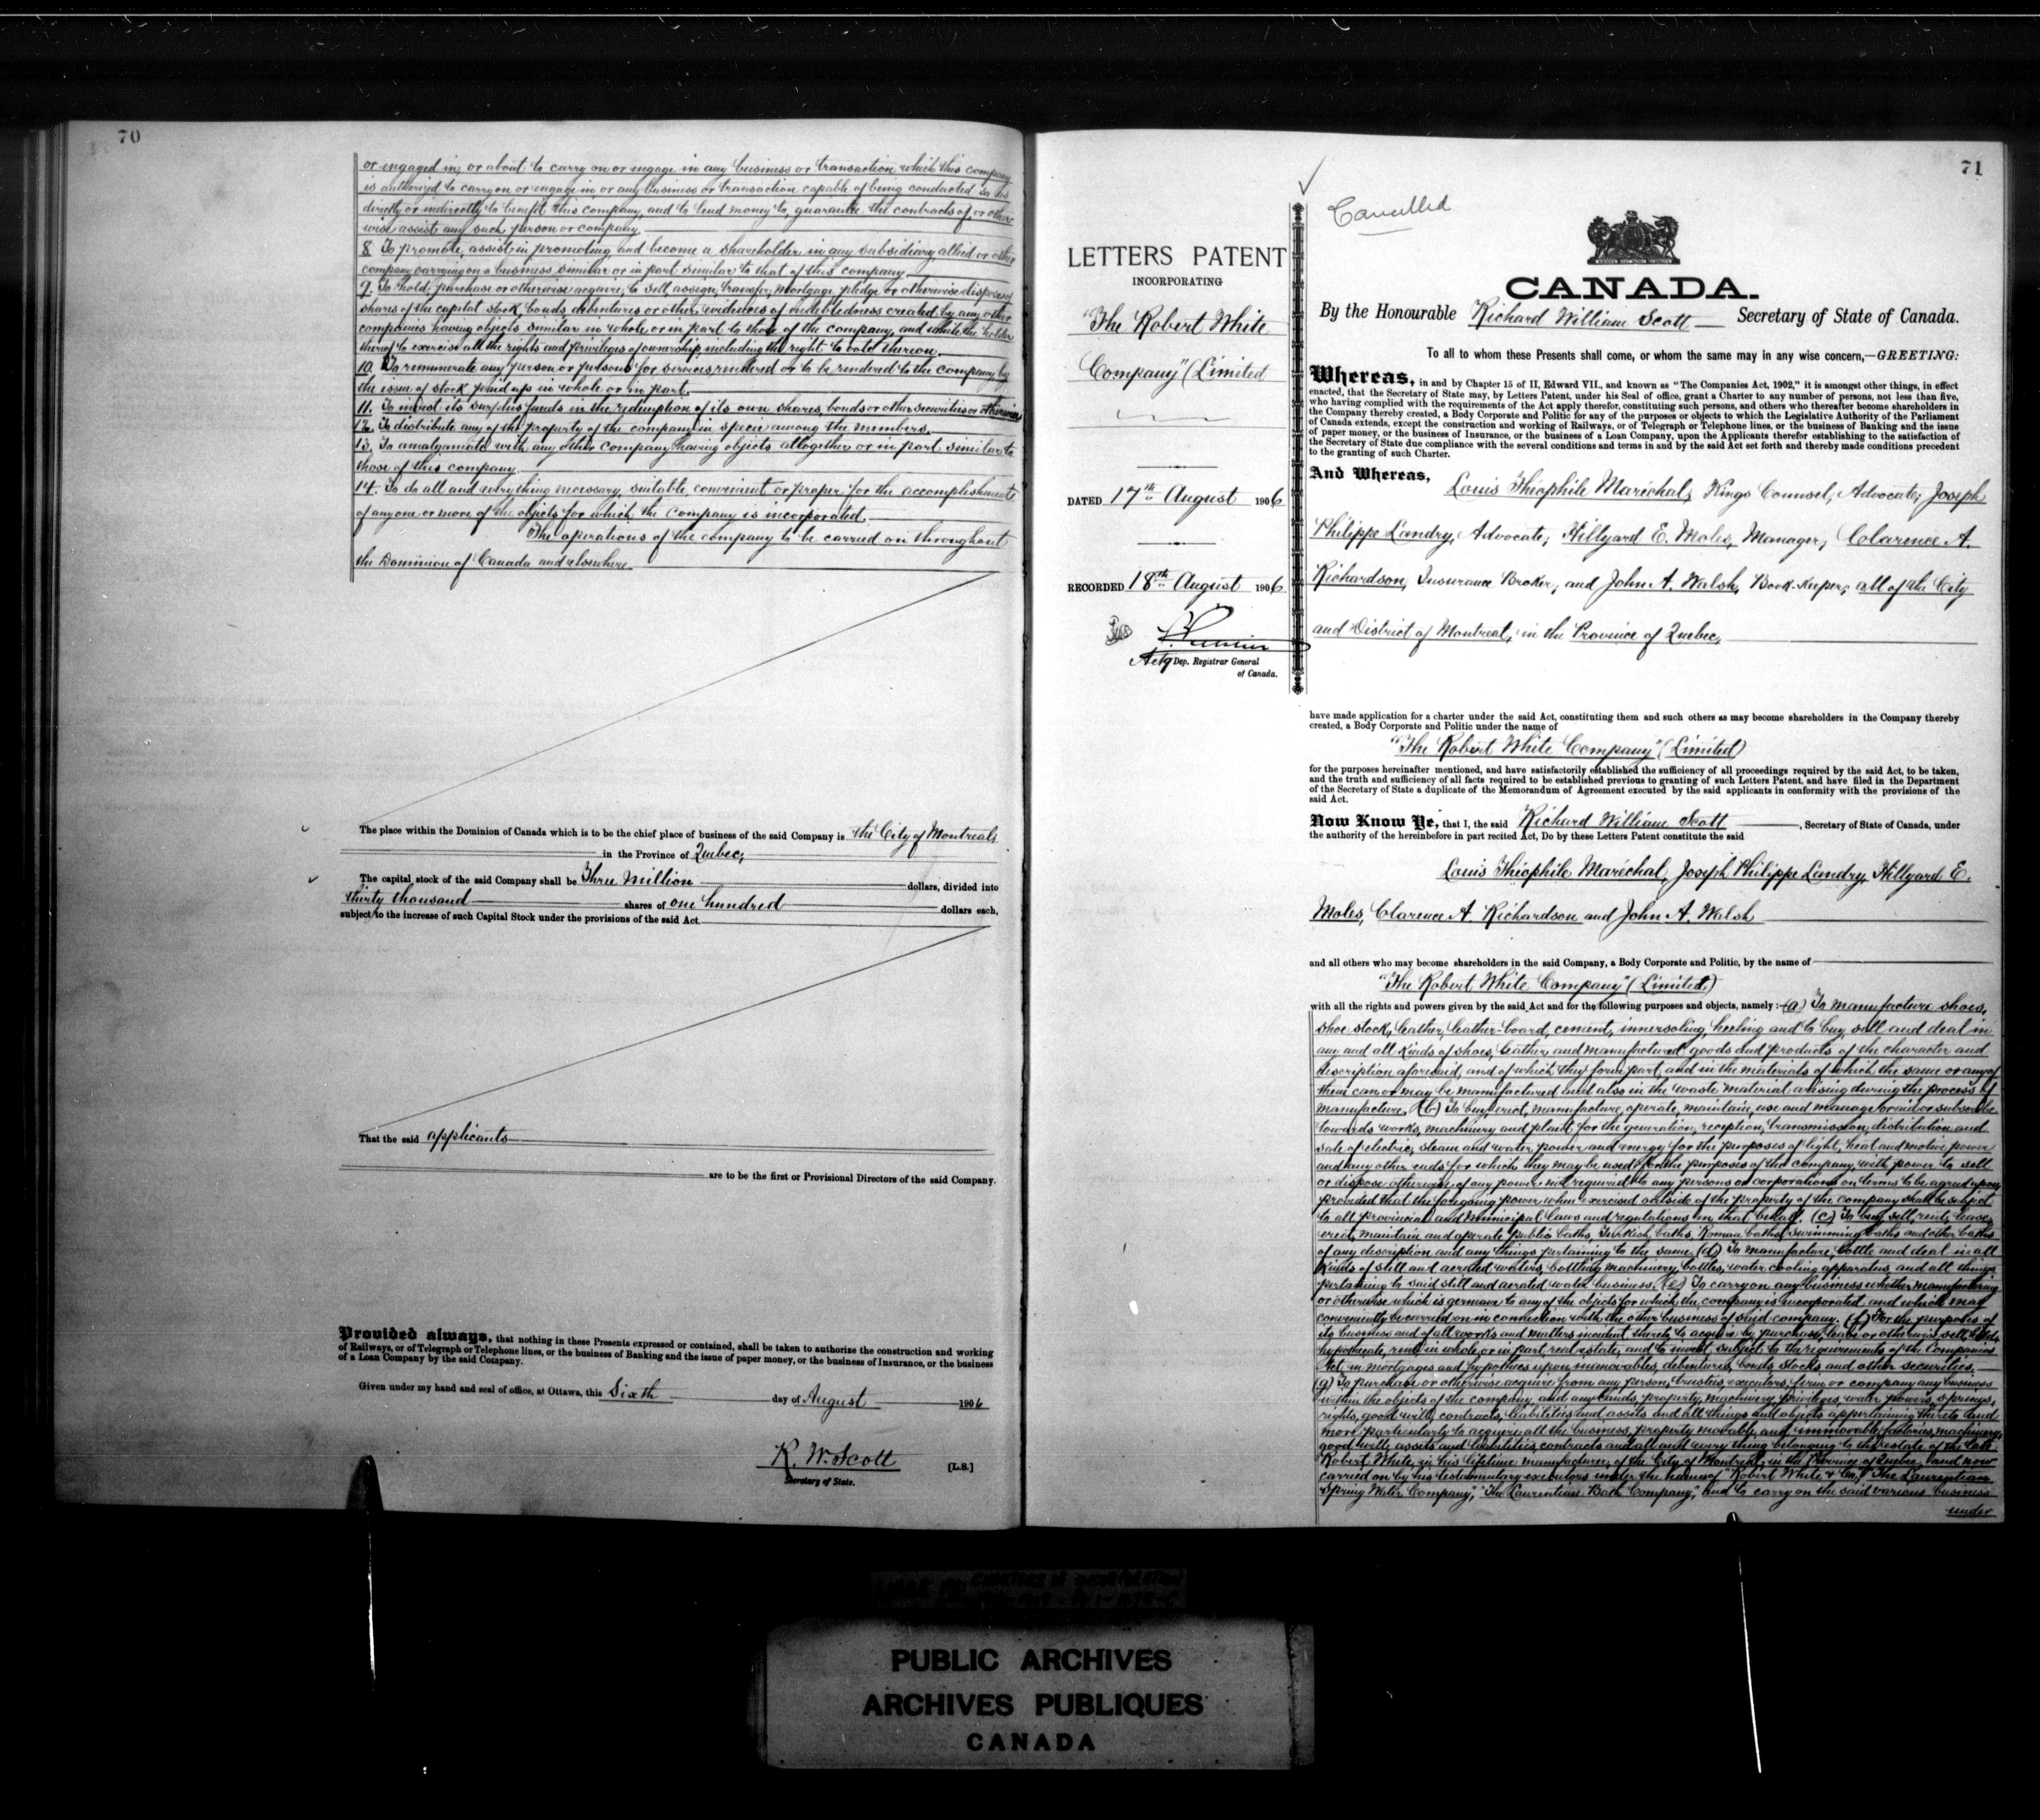 70
or engaged in, or about to carry on or engage in any business or transaction which this company
is authorized to carry on or engage in or any business or transaction capable of being conducted so as
directly or indirectly to benefit this company, and to lend money to, guarantee the contracts of, or other-
wise assist any such person or company.
8. To promote, assist in promoting and become a shareholder in any subsidiary, allied or other
company carrying on a business similar or in part similar to that of this company
9. To hold, purchase or otherwise acquire, to sell, assign, transfer, mortgage, pledge or otherwise dispose of
shares of the capital stock bonds, debentures or other evidences of indebtedness created by any other
companies having objects similar in whole or in part to those of the company, and while the holder
thereof to exercise all the rights and privileges of ownership, including the right to vote thereon.
10. To remunerate any person or persons for services rendered or to be rendered to the company by
the issue of stock paid up in whole or in part.
11. To invest its surplus funds in the redemption of its own shares, bonds or other securities or otherwise
12. To distribute any of the property of the company in specie among the members.
13. To amalgamate with any other company having objects altogether or in part similar to
those of this company.
14. To do all and everything necessary, suitable, convenient or proper for the accomplishment
of any one or more of the objects for which the company is incorporated.
The operations of the company to be carried on throughout
the Dominion of Canada and elsewhere.
The place within the Dominion of Canada which is to be the chief place of business of the said Company is the City of Montreal
in the Province of Quebec,
The capital stock of the said Company shall be Three Million dollars, divided into
thirty thousand shares of one hundred dollars each,
subject to the increase of such Capital Stock under the provisions of the said Act.
That the said applicants
are to be the first or Provisional Directors of the said Company.
Provided always, that nothing in these Presents expressed or contained, shall be taken to authorize the construction and working
of Railways, or of Telegraph or Telephone lines, or the business of Banking and the issue of paper money, or the business of Insurance, or the business
of a Loan Company by the said Company.
Given under my hand and seal of office, at Ottawa, this Sixth day of August 1906
R. W. Scott [L.S.]
Secretary of State.
71
Cancelled
LETTERS PATENT
INCORPORATING
"The Robert White
Company" (Limited
DATED 17th August 1906
RECORDED 18th August 1906
Actg Dep. Registrar General
of Canada.
CANADA.
By the Honourable Richard William Scott Secretary of State of Canada.
To all to whom these Presents shall come, or whom the same may in any wise concern,—GREETING:
Whereas, in and by Chapter 15 of II, Edward VII., and known as "The Companies Act, 1902," it is amongst other things, in effect
enacted, that the Secretary of State may, by Letters Patent, under his Seal of office, grant a Charter to any number of persons, not less than five,
who having complied with the requirements of the Act apply therefor, constituting such persons, and others who thereafter become shareholders in
the Company thereby created, a Body Corporate and Politic for any of the purposes or objects to which the Legislative Authority of the Parliament
of Canada extends, except the construction and working of Railways, or of Telegraph or Telephone lines, or the business of Banking and the issue
of paper money, or the business of Insurance, or the business of a Loan Company, upon the Applicants therefor establishing to the satisfaction of
the Secretary of State due compliance with the several conditions and terms in and by the said Act set forth and thereby made conditions precedent
to the granting of such Charter.
And Whereas, Louis Théophile Maréchal, Kings Counsel, Advocate; Joseph
Philippe Landry, Advocate; Hillyard E. Moles, Manager; Clarence A.
Richardson, Insurance Broker, and John A. Walsh, Book-keeper, all of the City
and District of Montreal, in the Province of Quebec,
have made application for a charter under the said Act, constituting them and such others as may become shareholders in the Company thereby
created, a Body Corporate and Politic under the name of
"The Robert White Company" (Limited)
for the purposes hereinafter mentioned, and have satisfactorily established the sufficiency of all proceedings required by the said Act, to be taken,
and the truth and sufficiency of all facts required to be established previous to granting of such Letters Patent, and have filed in the Department
of the Secretary of State a duplicate of the Memorandum of Agreement executed by the said applicants in conformity with the provisions of the
said Act.
Now Know Ye, that I, the said Richard William Scott, Secretary of State of Canada, under
the authority of the hereinbefore in part recited Act, Do by these Letters Patent constitute the said
Louis Théophile Maréchal, Joseph Philippe Landry, Hillyard E.
Moles, Clarence A. Richardson and John A. Walsh
and all others who may become shareholders in the said Company, a Body Corporate and Politic, by the name of
"The Robert White Company" (Limited)
with all the rights and powers given by the said Act and for the following purposes and objects, namely:—(a) To manufacture shoes,
shoe stock, leather, leather-board, cement, innersoling, heeling and to buy, sell and deal in
any and all kinds of shoes, leather and manufactured goods and products of the character and
description aforesaid, and of which they form part, and in the materials of which the same or any of
them can or may be manufactured and also in the waste material arising during the process of
manufacture. (b) To buy, erect, manufacture, operate, maintain, use and manage or aid or subscribe
towards works, machinery and plant for the generation, reception, transmission, distribution and
sale of electric, steam and water power and energy for the purposes of light, heat and motive power
and any other ends for which they may be used for the purposes of the company, with power to sell
or dispose otherwise of any power not required to any persons or corporations on terms to be agreed upon
provided that the foregoing power when exercised outside of the property of the company shall be subject
to all provincial and municipal laws and regulations in that behalf. (c) To buy, sell, rent, lease,
erect, maintain and operate public baths, Turkish baths, Roman baths, swimming baths and other baths
of any description and any things pertaining to the same. (d) To manufacture, bottle and deal in all
kinds of still and aerated waters, bottling machinery, bottles, water cooling apparatus, and all things
pertaining to said still and aerated water business. (e) To carry on any business whether manufacturing
or otherwise which is germane to any of the objects for which the company is incorporated and which may
conveniently be carried on in connection with the other business of said company. (f) For the purposes of
its business and of all works and matters incident thereto to acquire by purchase, lease or otherwise, sell,
hypothecate, rent in whole or in part, real estate, and to invest, subject to the requirements of the Companies
Act, in mortgages and hypothecs upon immovables, debentures, bonds, stocks and other securities.
(g) To purchase or otherwise acquire from any person, trustees, executors, firm or company any business
within the objects of the company, and any lands, property, machinery, privileges, water powers, springs,
rights, good will, contracts, liabilities and assets and all things and objects appertaining thereto and
more particularly to acquire all the business, property movable and immovable, factories, machinery,
good will, assets and liabilities, contracts and all and every thing belonging to the estate of the late
Robert White, in his lifetime manufacturer, of the City of Montreal, in the Province of Quebec, and now
carried on by his testamentary executors under the names of "Robert White & Co.", "The Laurentian
Spring Water Company", "The Laurentian Bath Company", and to carry on the said various business
under
PUBLIC ARCHIVES
ARCHIVES PUBLIQUES
CANADA